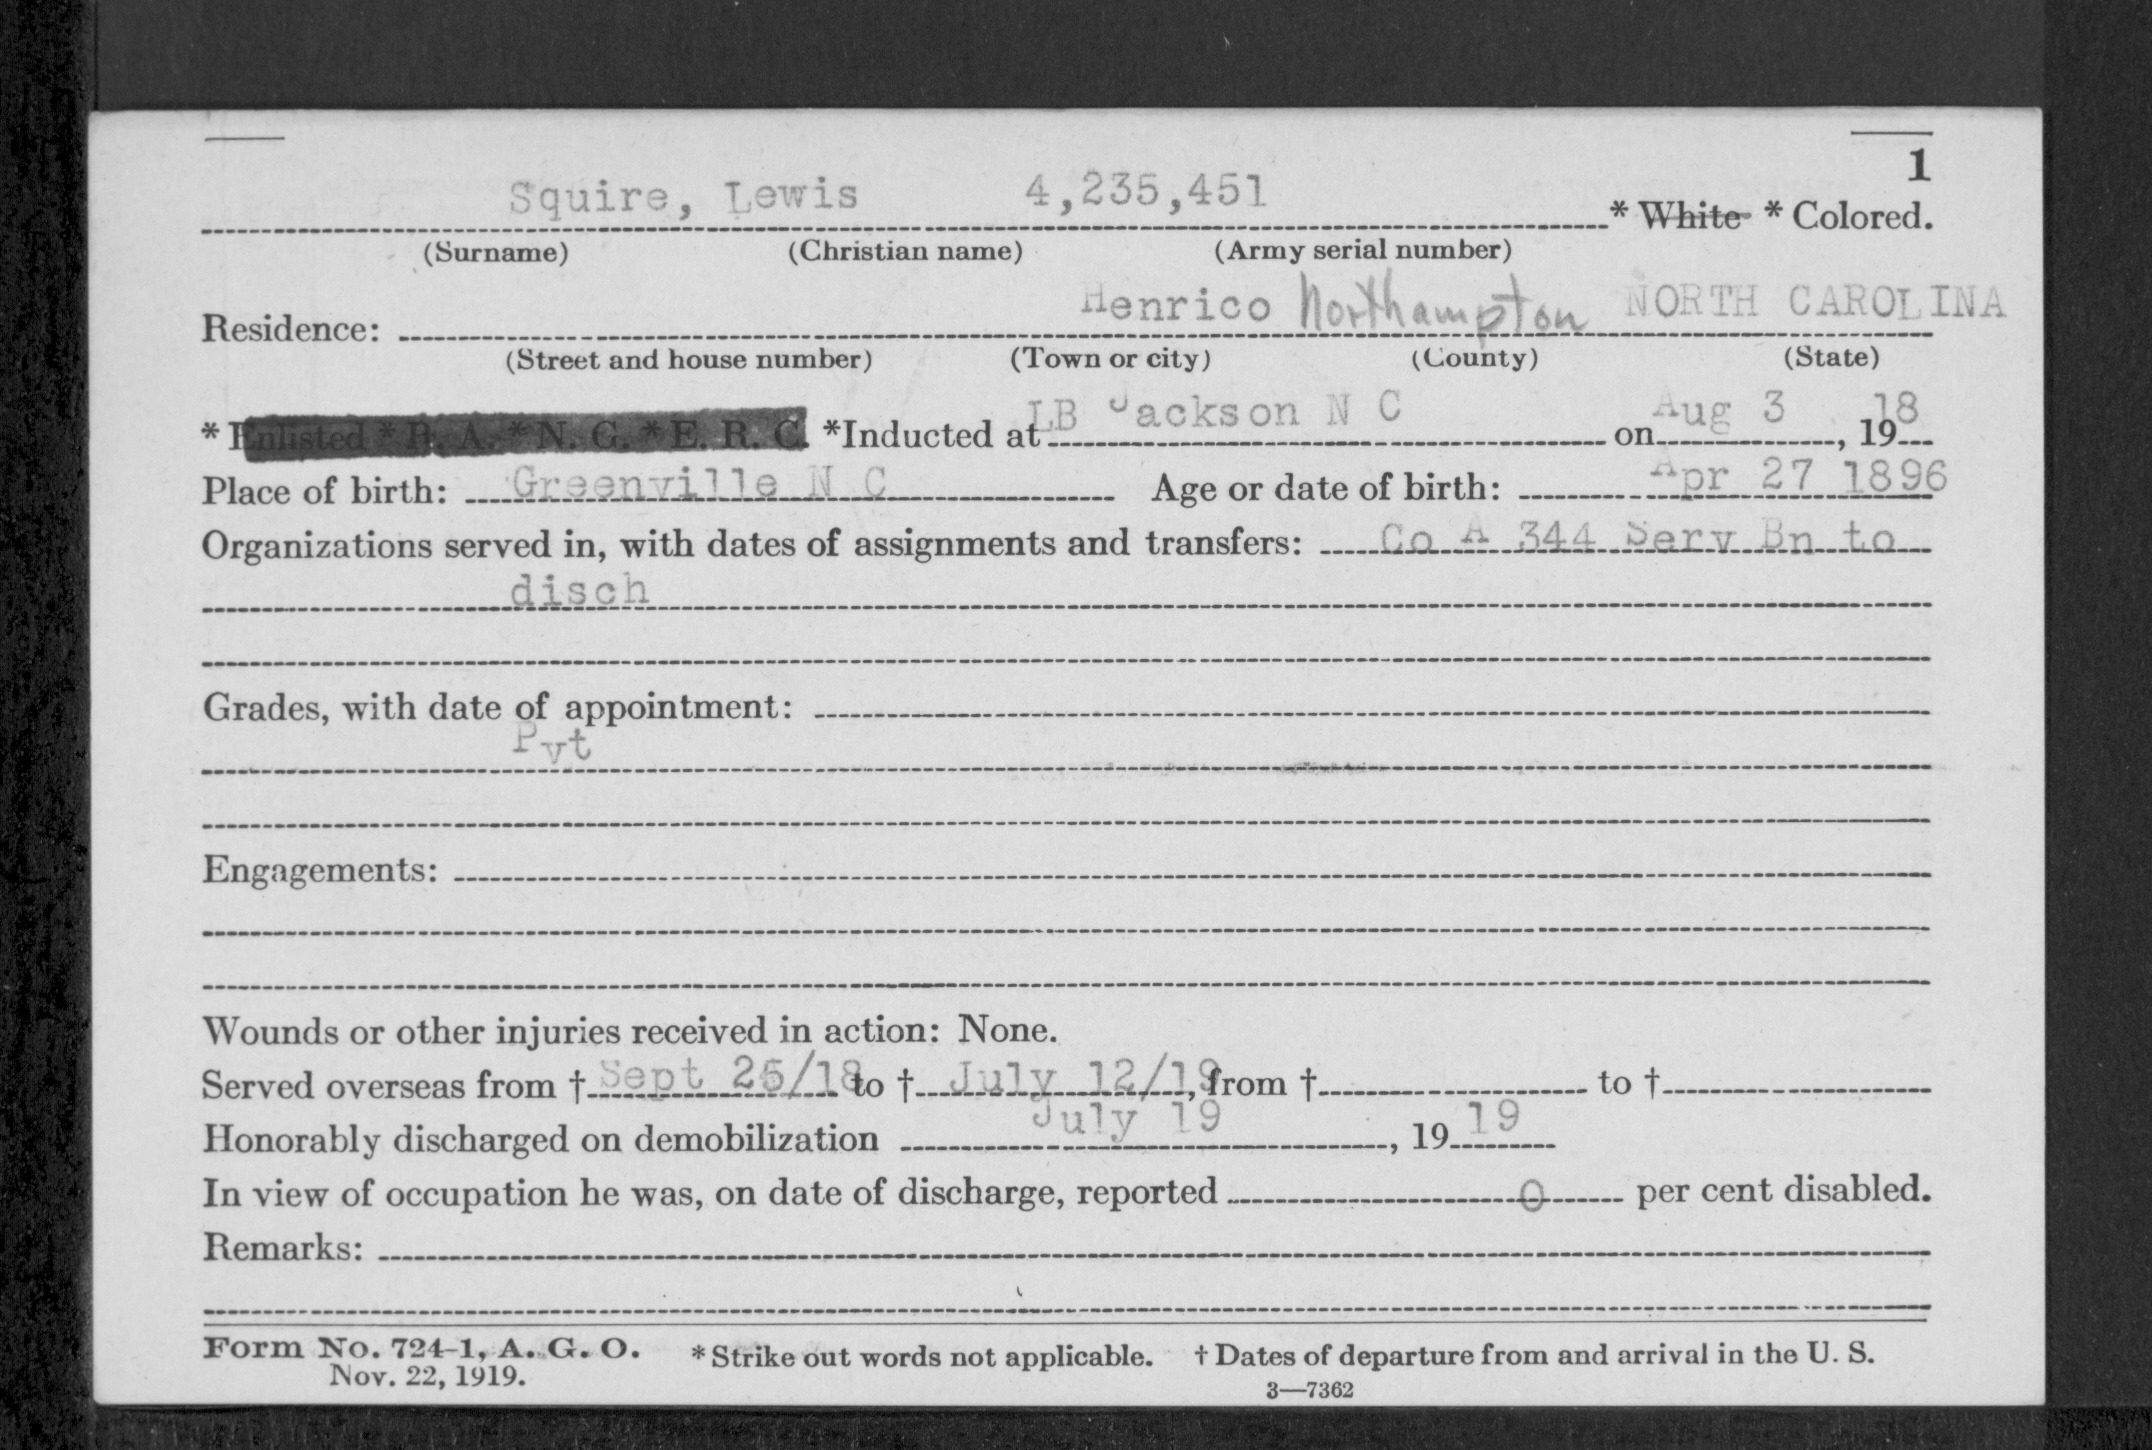 1
Squire, Lewis 4,235,451 * White * Colored.
(Surname) (Christian name) (Army serial number)
Residence: Henrico Northampton NORTH CAROLINA
(Street and house number) (Town or city) (County) (State)
* Enlisted * R. A. * N. G. * E. R. C. *Inducted at LB Jackson N C on Aug 3, 1918
Place of birth: Greenville N C Age or date of birth: Apr 27 1896
Organizations served in, with dates of assignments and transfers: Co A 344 Serv Bn to
disch
Grades, with date of appointment:
Pvt
Engagements:
Wounds or other injuries received in action: None.
Served overseas from † Sept 25/18 to † July 12/19, from † to †
Honorably discharged on demobilization July 19, 1919
In view of occupation he was, on date of discharge, reported 0 per cent disabled.
Remarks:
Form No. 724-1, A. G. O. * Strike out words not applicable. † Dates of departure from and arrival in the U. S.
Nov. 22, 1919. 3—7362